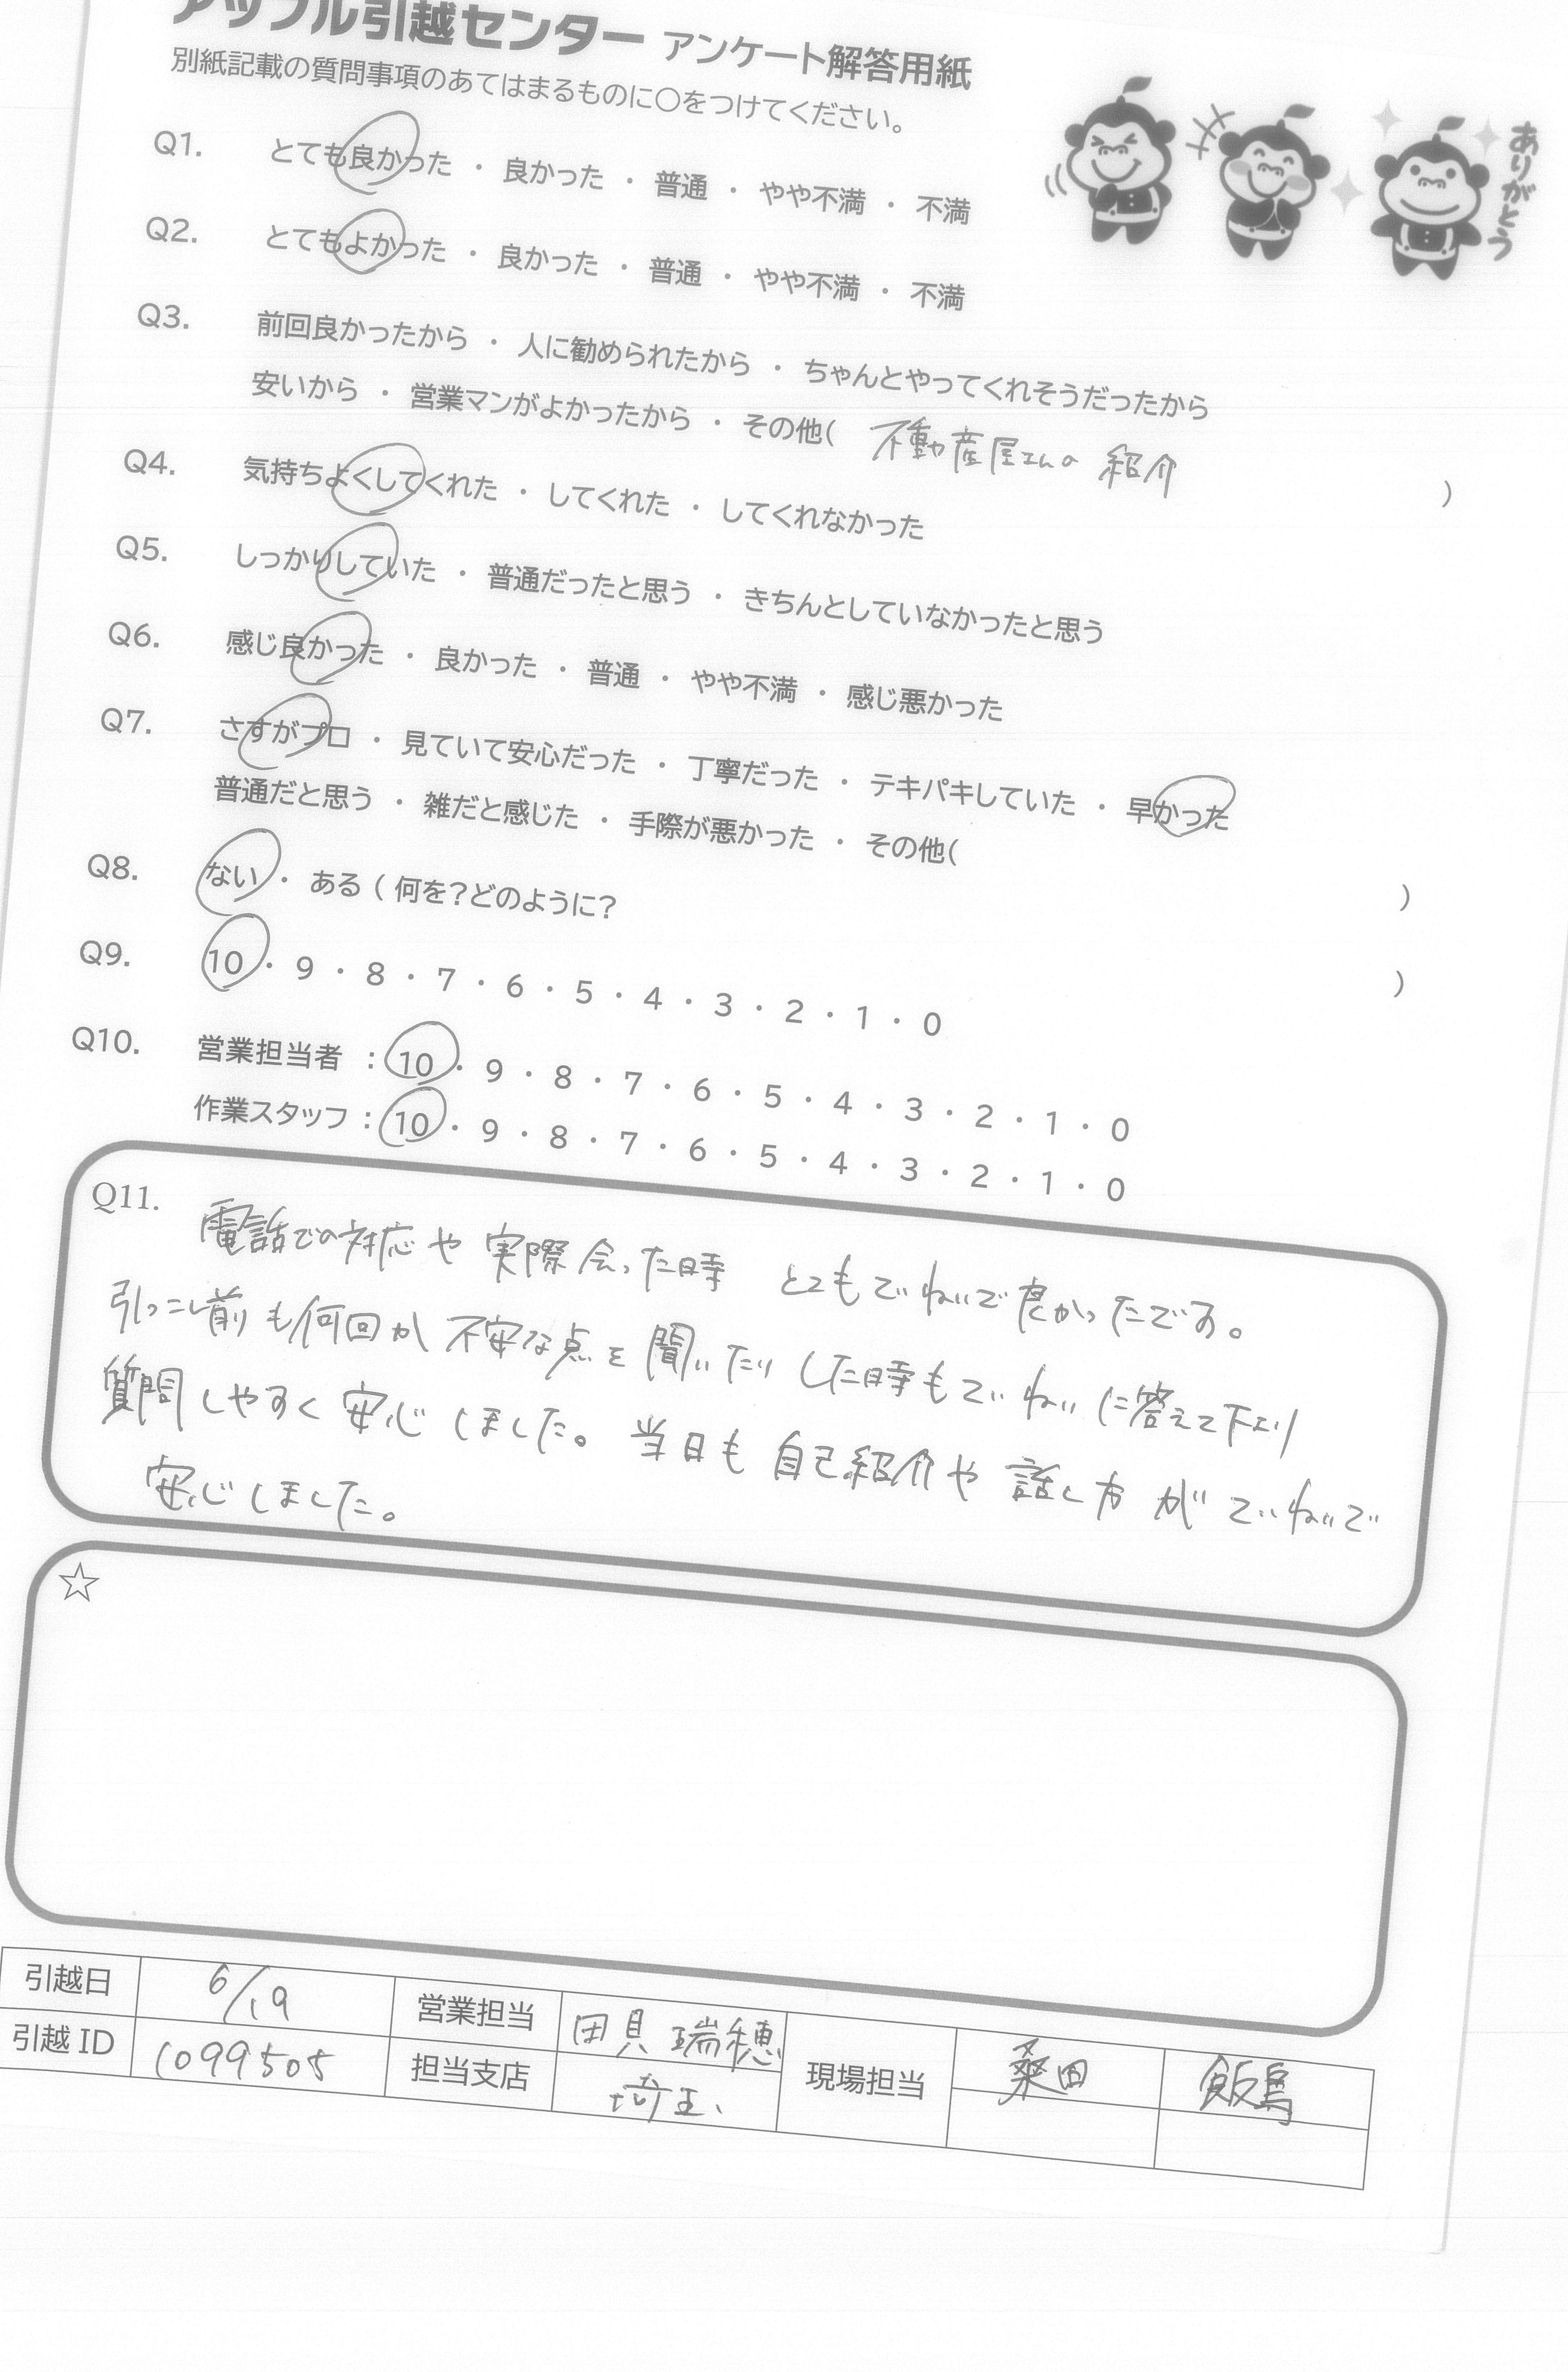 アップル引越センター アンケート解答用紙
別紙記載の質問事項のあてはまるものに○をつけてください。
ありがとう
Q1. とても良かった ・ 良かった ・ 普通 ・ やや不満 ・ 不満
Q2. とてもよかった ・ 良かった ・ 普通 ・ やや不満 ・ 不満
Q3. 前回良かったから ・ 人に勧められたから ・ ちゃんとやってくれそうだったから
安いから ・ 営業マンがよかったから ・ その他( 不動産屋さんの 紹介 )
Q4. 気持ちよくしてくれた ・ してくれた ・ してくれなかった
Q5. しっかりしていた ・ 普通だったと思う ・ きちんとしていなかったと思う
Q6. 感じ良かった ・ 良かった ・ 普通 ・ やや不満 ・ 感じ悪かった
Q7. さすがプロ ・ 見ていて安心だった ・ 丁寧だった ・ テキパキしていた ・ 早かった
普通だと思う ・ 雑だと感じた ・ 手際が悪かった ・ その他( )
Q8. ない ・ ある ( 何を?どのように? )
Q9. 10 ・ 9 ・ 8 ・ 7 ・ 6 ・ 5 ・ 4 ・ 3 ・ 2 ・ 1 ・ 0
Q10. 営業担当者 : 10 ・ 9 ・ 8 ・ 7 ・ 6 ・ 5 ・ 4 ・ 3 ・ 2 ・ 1 ・ 0
作業スタッフ : 10 ・ 9 ・ 8 ・ 7 ・ 6 ・ 5 ・ 4 ・ 3 ・ 2 ・ 1 ・ 0
Q11. 電話での対応や 実際会った時 とてもていねいで良かったです。
引っこし前も何回か 不安な点を聞いたりした時もていねいに答えて下さり
質問しやすく安心しました。当日も自己紹介や話し方がていねいで
安心しました。
☆
引越日 6/19 営業担当 田貝 瑞穂 現場担当 桑田 飯島
引越 ID 1099505 担当支店 埼玉